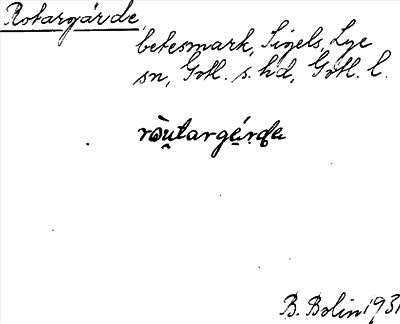 Rotargärde,
betesmark, Sigels, Lye
sn, Gotl. s. hd, Gotl. l.
rò̀u̯targé̬rdɐ
B. Bolin 1931